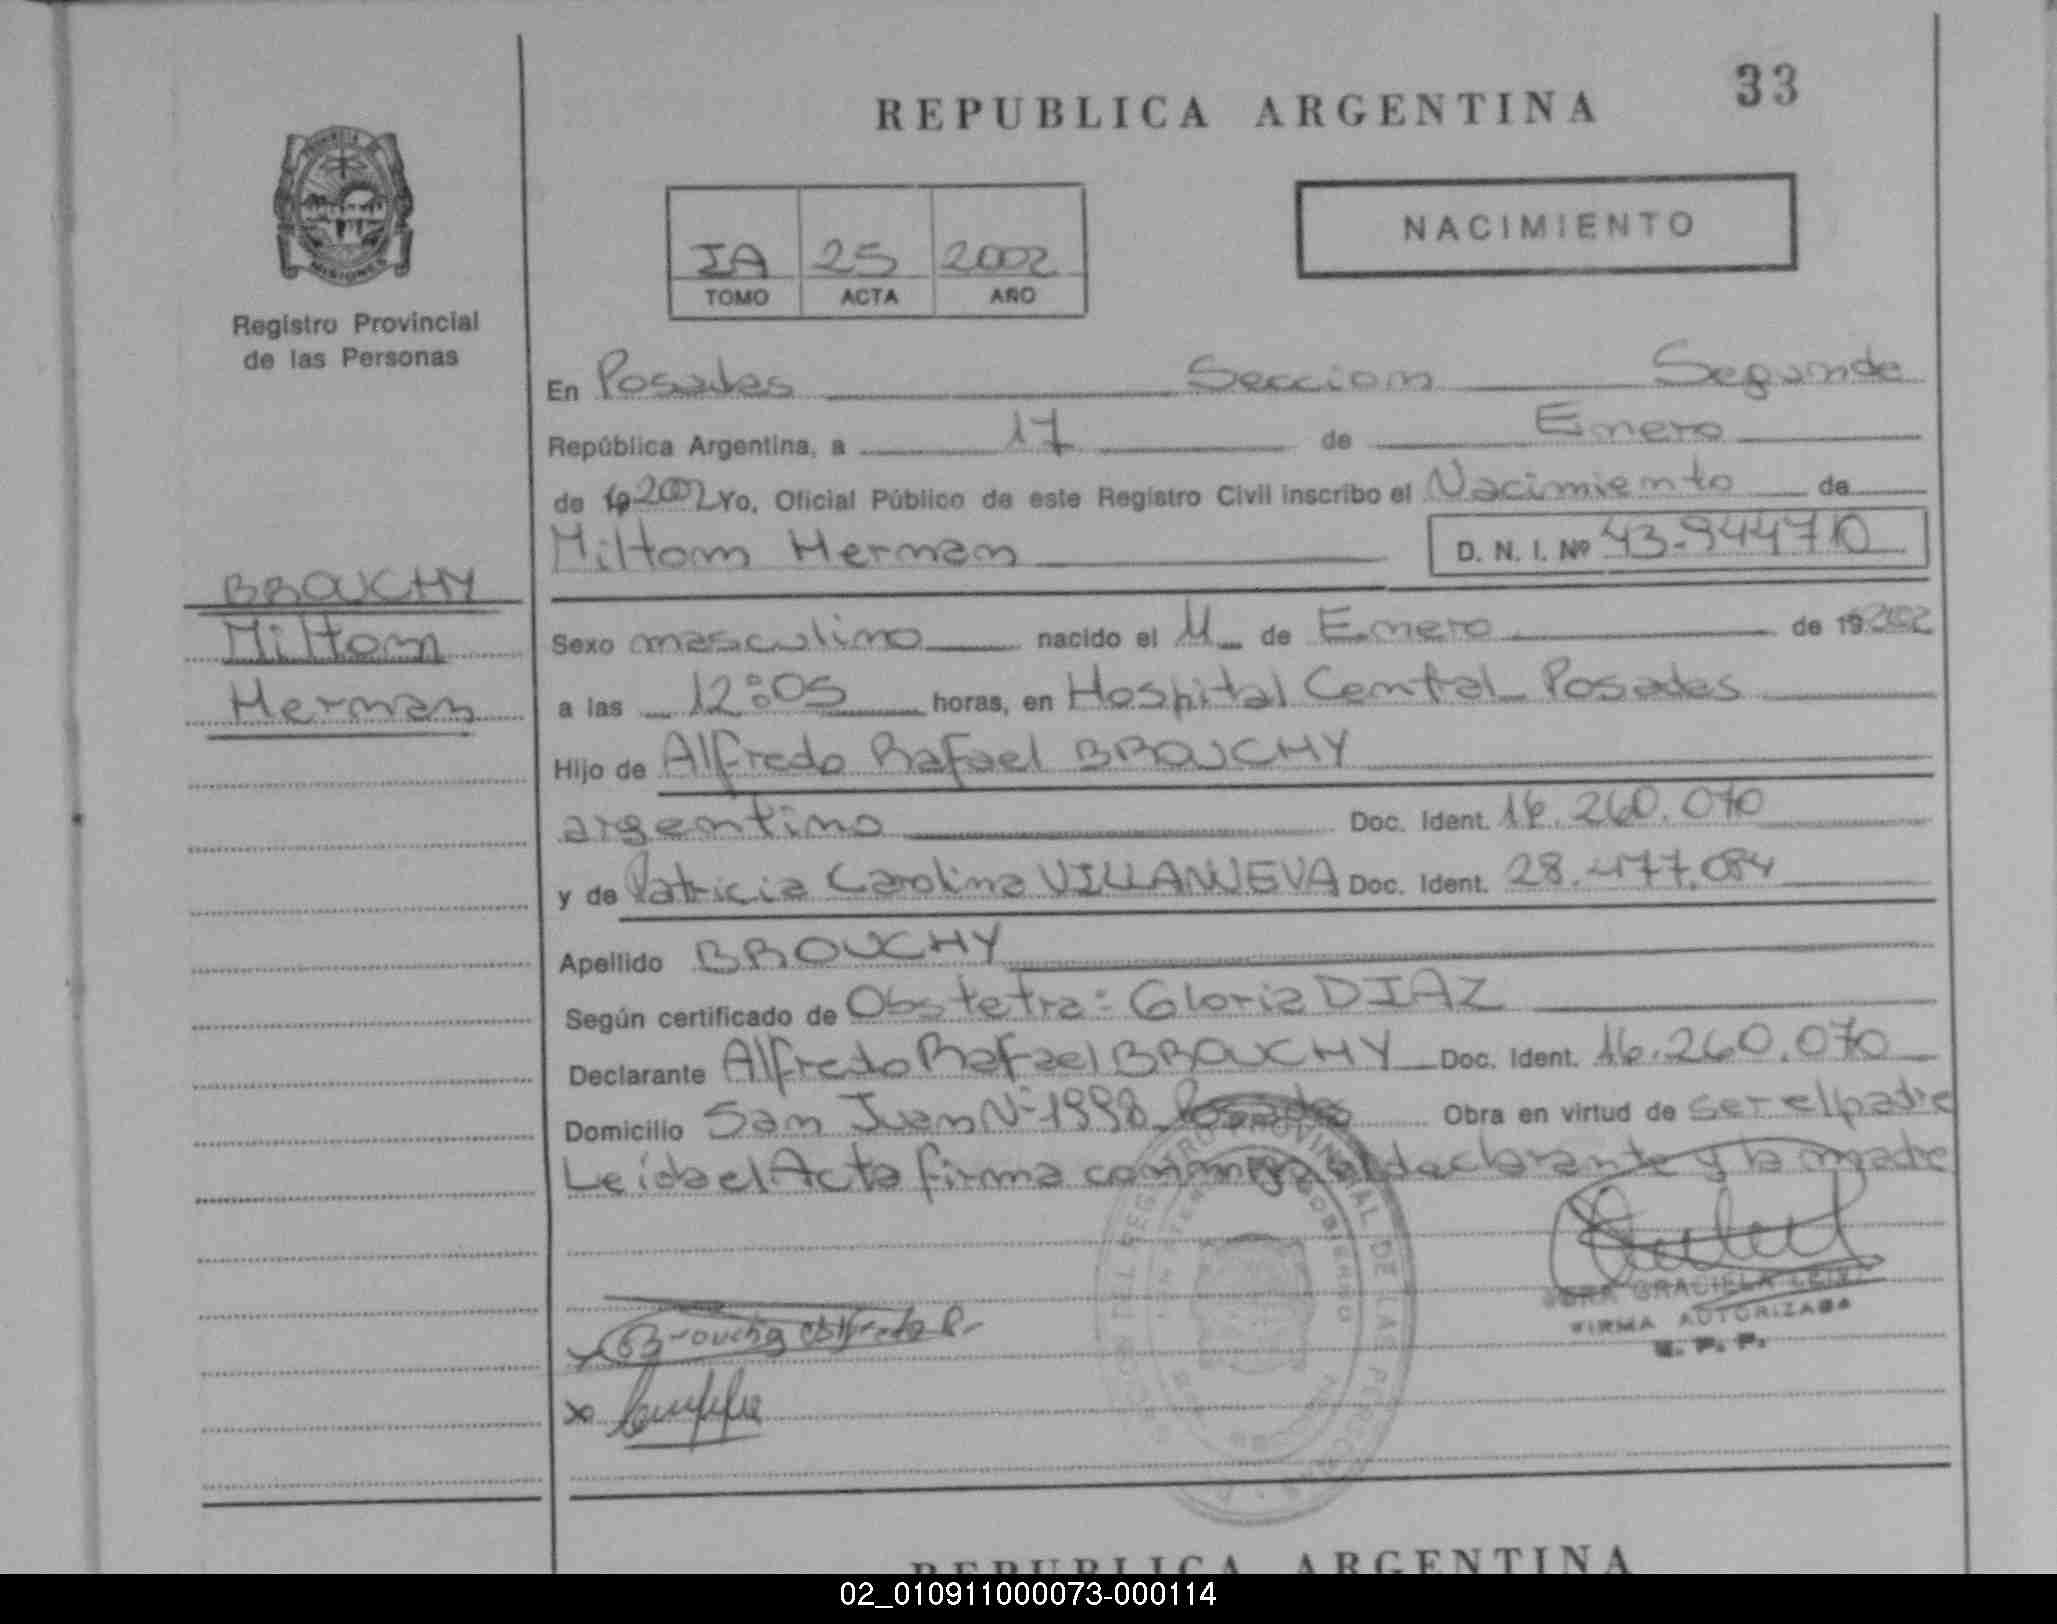 33
REPUBLICA ARGENTINA
NACIMIENTO
IA 25 2002
TOMO ACTA AÑO
MISIONES
Registro Provincial
de las Personas
En Posadas Seccion Segunda
República Argentina, a 17 de Enero
de 19 2002 Yo, Oficial Público de este Registro Civil inscribo el Nacimiento de
Miltom Hernan D. N. I. Nº 43.944710
BROUCHY
Miltom
Hernan
Sexo masculino nacido el 11 de Enero de 19 2002
a las 12:05 horas, en Hospital Central Posadas
Hijo de Alfredo Rafael BROUCHY
argentino Doc. Ident. 16.260.070
y de Patricia Carolina VILLANUEVA Doc. Ident. 28.477.084
Apellido BROUCHY
Según certificado de Obstetra: Gloria DIAZ
Declarante Alfredo Rafael BROUCHY Doc. Ident. 16.260.070
Domicilio San Juan Nº 1998 Posadas Obra en virtud de ser el padre
Leída el Acta firma conmigo el declarante y la madre
GRACIELA
FIRMA AUTORIZADA
x Brouchy Alfredo R.
x
REPUBLICA ARGENTINA
02_010911000073-000114